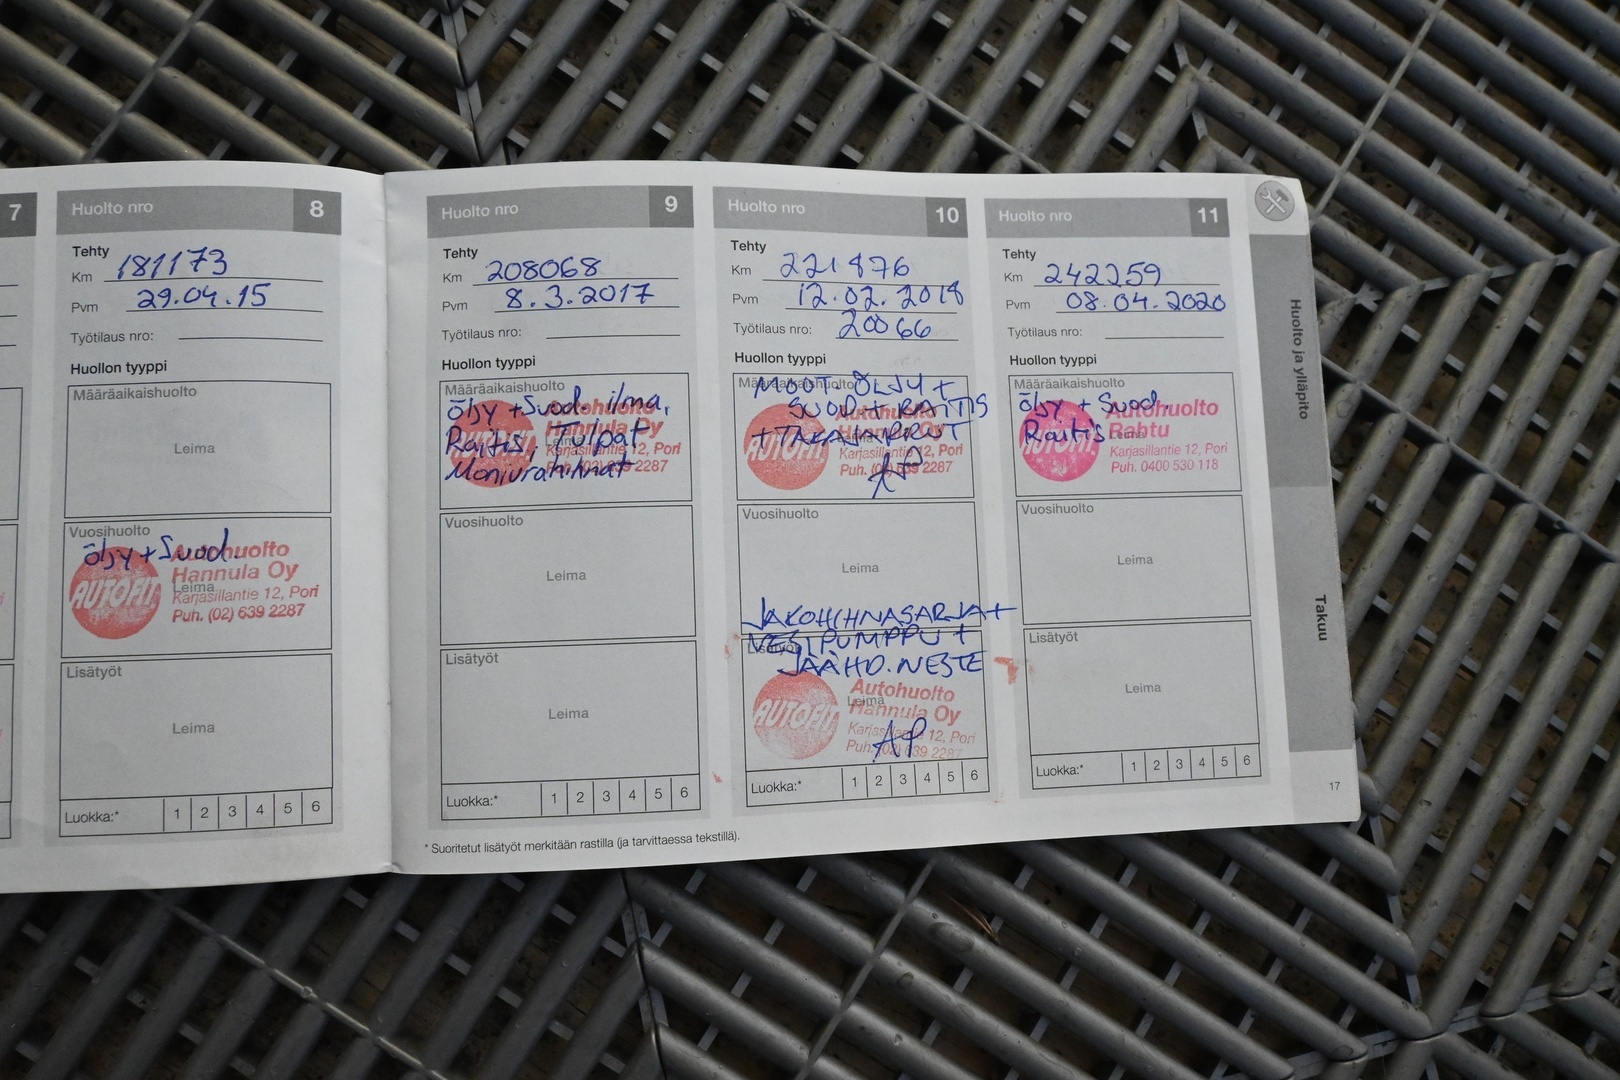 7
Huolto nro 8
Tehty
Km 181173
Pvm 29.04.15
Työtilaus nro:
Huollon tyyppi
Määräaikaishuolto
Leima
Vuosihuolto
öljy + Suod.
AUTOFIT
Autohuolto
Hannula Oy
Leima
Karjasillantie 12, Pori
Puh. (02) 639 2287
Lisätyöt
Leima
Luokka:* 1 2 3 4 5 6
Huolto nro 9
Tehty
Km 208068
Pvm 8.3.2017
Työtilaus nro:
Huollon tyyppi
Määräaikaishuolto
öljy + Suod. ilma,
Raitis, Tulpat
Moniurahihnat
AUTOFIT
Autohuolto
Hannula Oy
Leima
Karjasillantie 12, Pori
Puh. (02) 639 2287
Vuosihuolto
Leima
Lisätyöt
Leima
Luokka:* 1 2 3 4 5 6
* Suoritetut lisätyöt merkitään rastilla (ja tarvittaessa tekstillä).
Huolto nro 10
Tehty
Km 221876
Pvm 12.02.2018
Työtilaus nro: 20066
Huollon tyyppi
Määräaikaishuolto
MOOT.ÖLJY +
SUOD + RAITIS
+ TAKAJARRUT
AP
AUTOFIT
Autohuolto
Hannula Oy
Karjasillantie 12, Pori
Puh. (02) 639 2287
Vuosihuolto
Leima
JAKOHIHNASARJA +
VESIPUMPPU +
JÄÄHD.NESTE
Lisätyöt
AUTOFIT
Autohuolto
Leima
Hannula Oy
Karjasillantie 12, Pori
Puh. (02) 639 2287
AP
Luokka:* 1 2 3 4 5 6
Huolto nro 11
Tehty
Km 242259
Pvm 08.04.2020
Työtilaus nro:
Huollon tyyppi
Määräaikaishuolto
öljy + Suod.
Raitis
AUTOFIT
Autohuolto
Rahtu
Leima
Karjasillantie 12, Pori
Puh. 0400 530 118
Vuosihuolto
Leima
Lisätyöt
Leima
Luokka:* 1 2 3 4 5 6
Huolto ja ylläpito
Takuu
17